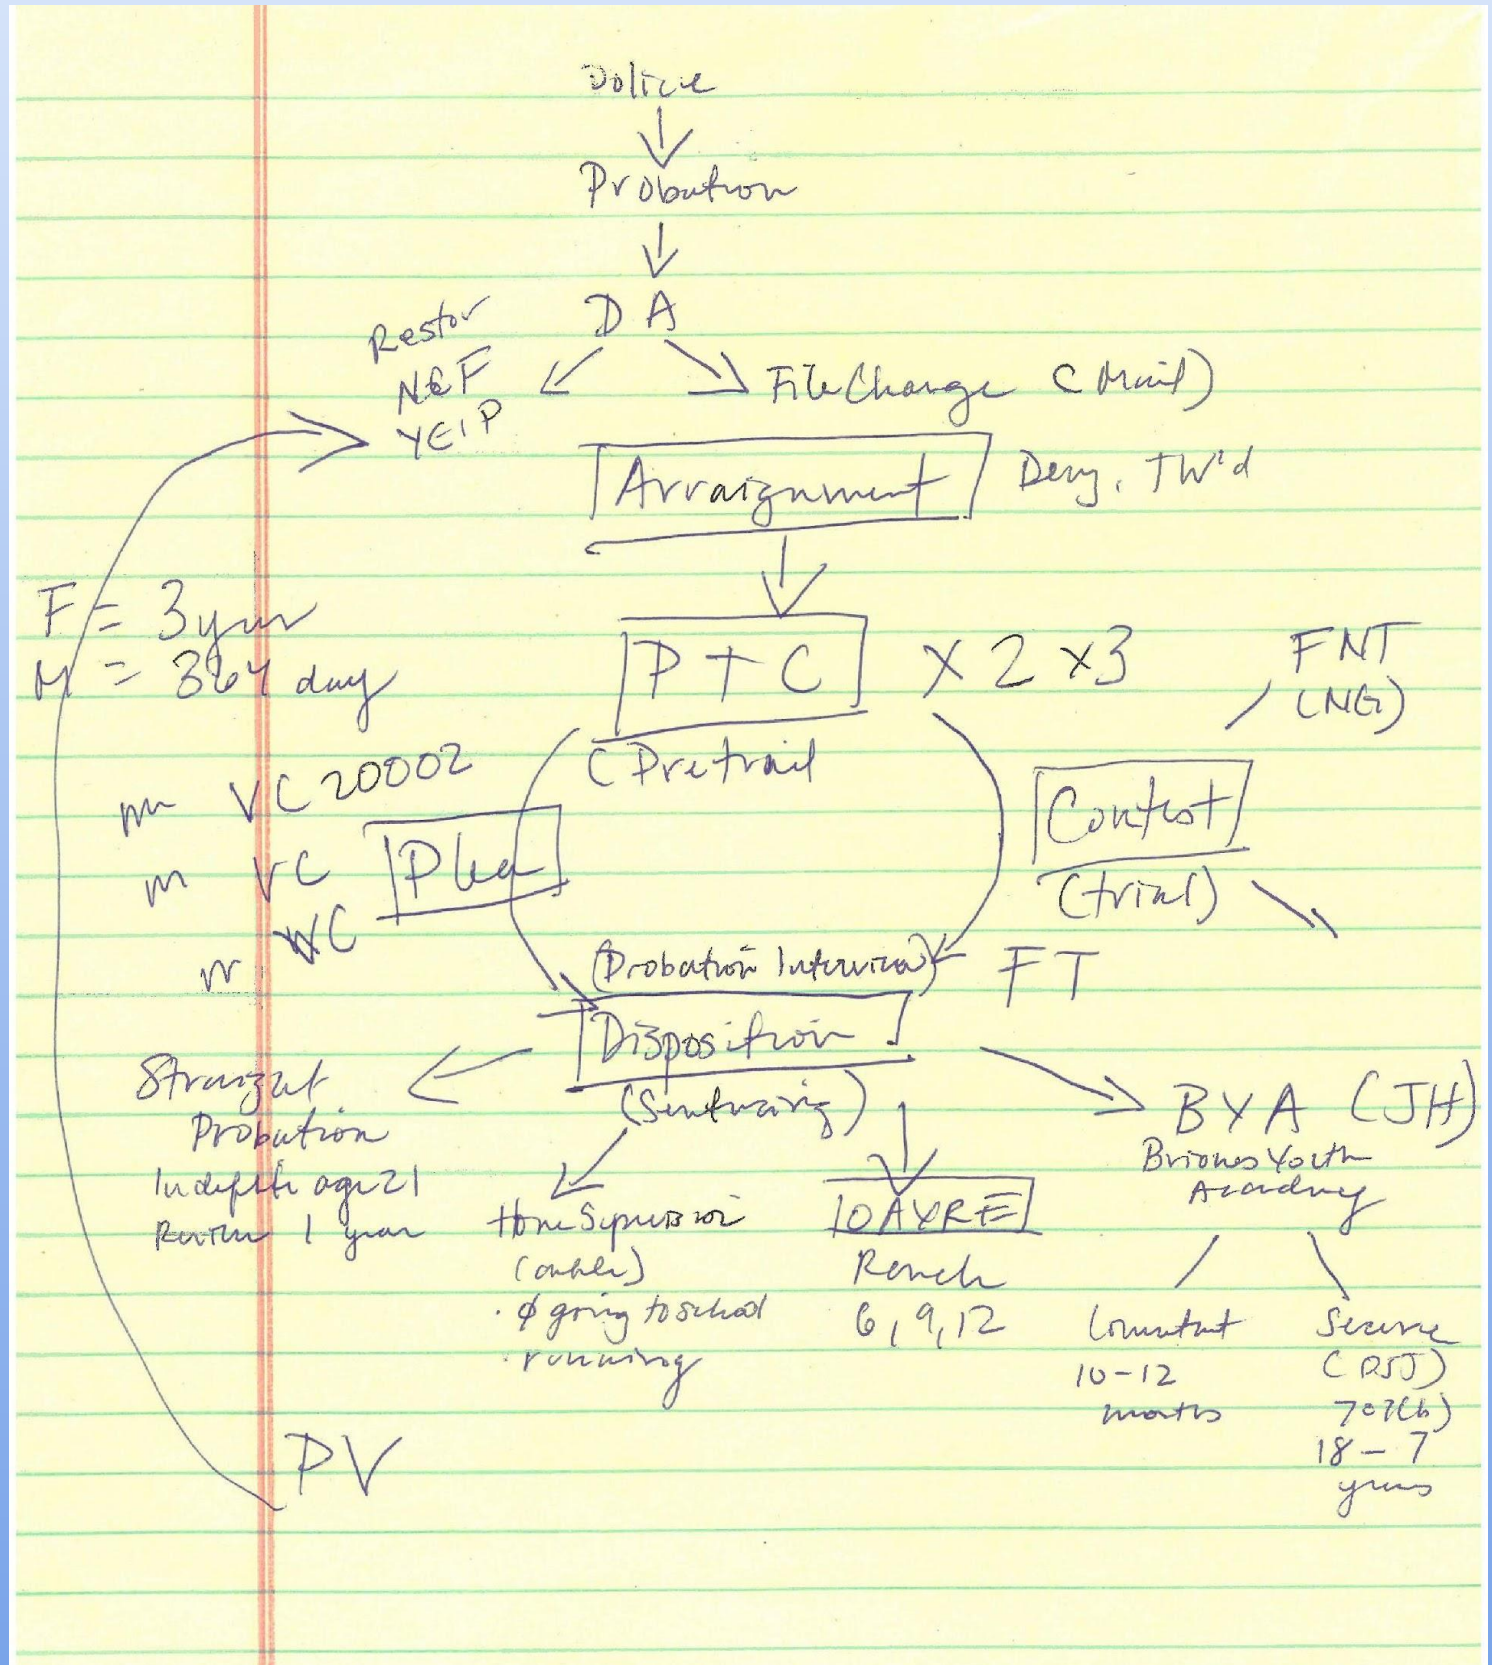 Police
Probation
DA
Restor
NOF
YEIP
File Charge (Mail)
Arraignment
Deny, TW'd
F = 3 year
M = 364 day
PTC x2 x3
(Pretrail
FNT
(NG)
m VC 20002
m VC
m VC
Plea
Contest
(trial)
FT
(Probation Interview)
Disposition
(Sentencing)
Straight
Probation
Indefinite age 21
Review 1 year
Home Supervision
(ankle)
· ∅ going to school
· running
OAYRF
Ranch
6, 9, 12
BYA (JH)
Briones Youth
Academy
Commitment
10-12
months
Secure
(DJJ)
707(b)
18 - 7
years
PV